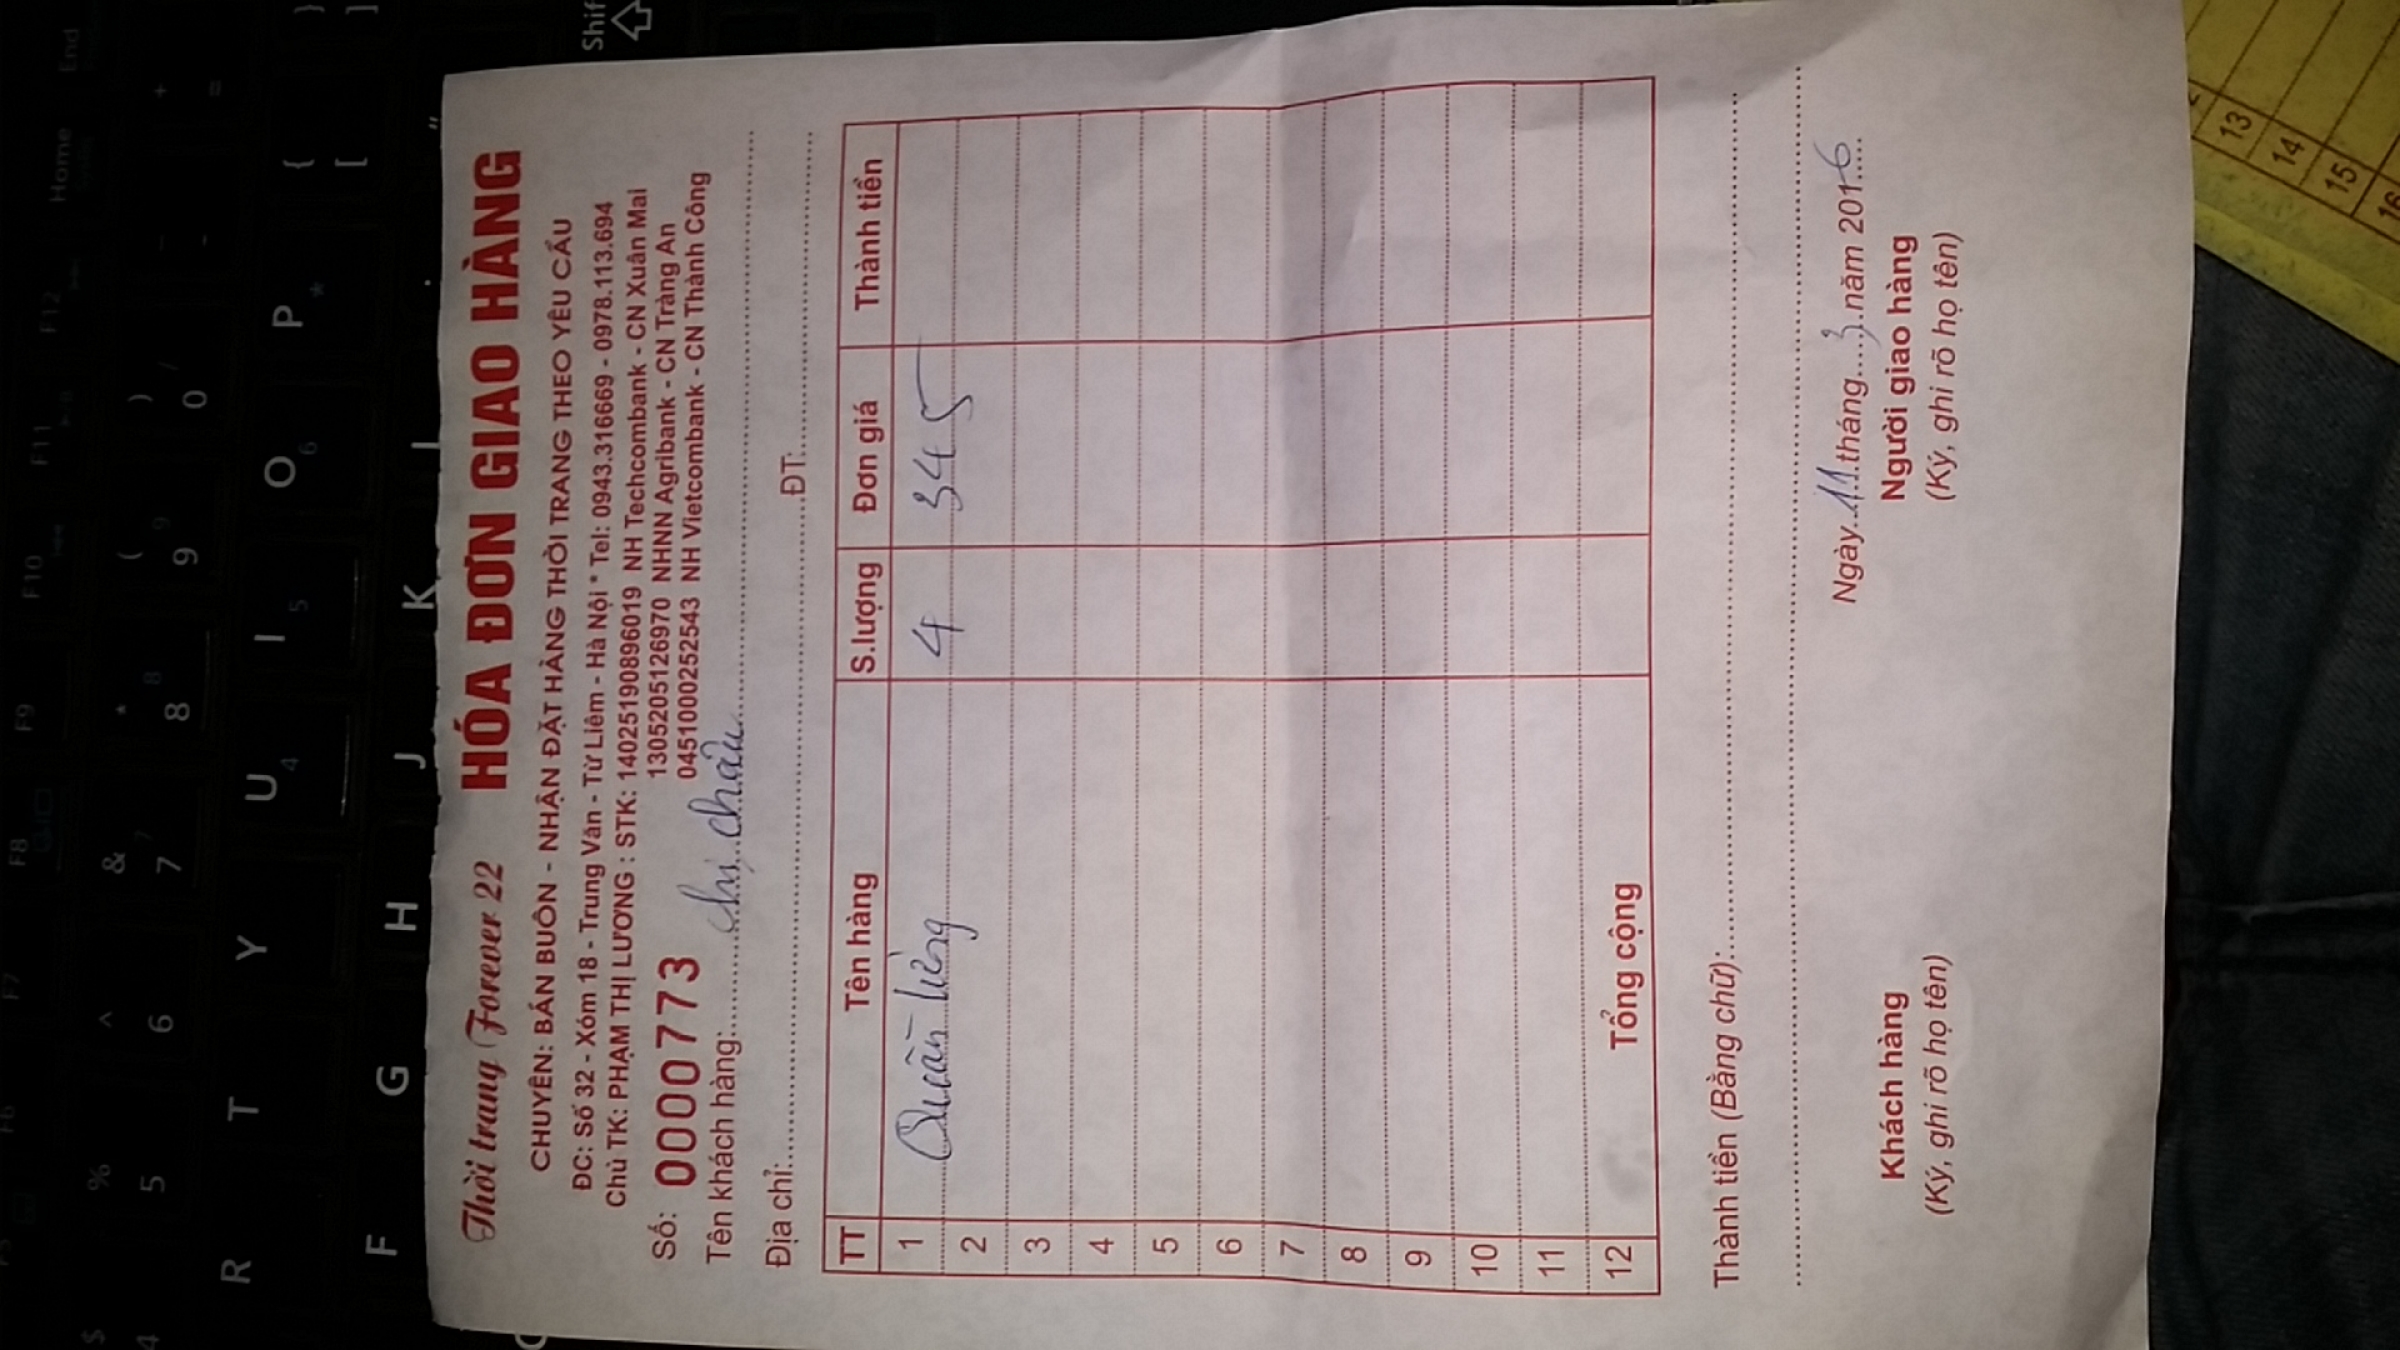 Thời trang Forever 22 HÓA ĐƠN GIAO HÀNG
CHUYÊN: BÁN BUÔN - NHẬN ĐẶT HÀNG THỜI TRANG THEO YÊU CẦU
ĐC: Số 32 - Xóm 18 - Trung Văn - Từ Liêm - Hà Nội * Tel: 0943.316669 - 0978.113.694
Chủ TK: PHẠM THỊ LƯƠNG : STK: 14025190896019 NH Techcombank - CN Xuân Mai
1305205126970 NHNN Agribank - CN Tràng An
0451000252543 NH Vietcombank - CN Thành Công
Số: 0000773
Tên khách hàng: chị châu
Địa chỉ: ĐT:
TT Tên hàng S.lượng Đơn giá Thành tiền
1 Quần lửng 4 345
2
3
4
5
6
7
8
9
10
11
12 Tổng cộng
Thành tiền (Bằng chữ):
Ngày 11 tháng 3 năm 2016
Khách hàng Người giao hàng
(Ký, ghi rõ họ tên) (Ký, ghi rõ họ tên)
13
14
15
16
End
Home
F12
F11
F10
F9
F8
F7
Shift
+ =
_ -
) 0 /
( 9 9
* 8 8
& 7 7
^ 6
% 5
$ 4
} ]
{ [
P *
O 6
I 5
U 4
Y
T
R
K
J
H
G
F